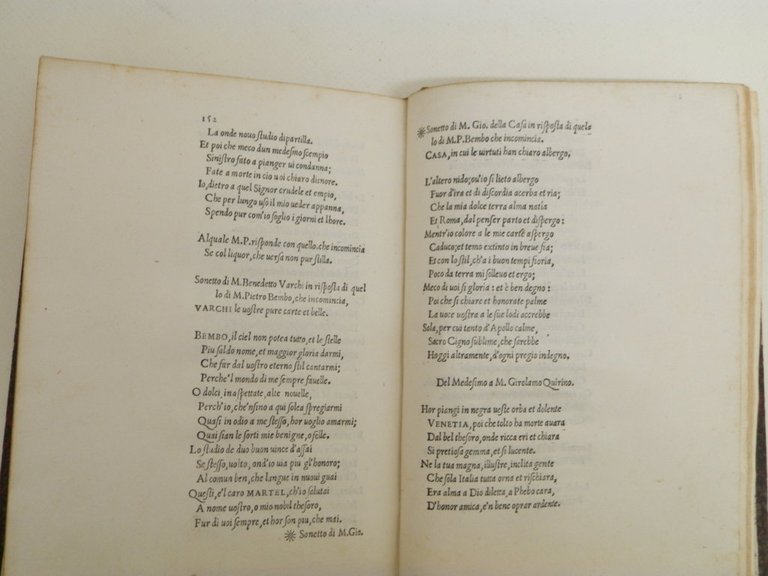 152
La onde nouo studio dipartilla.
Et poi che meco dun medesmo scempio
Sinistro fato a pianger ui condanna;
Fate a morte in cio uoi chiaro disnore.
Io, dietro a quel Signor crudele et empio,
Che per lungo uso il mio ueder appanna,
Spendo pur com'io soglio i giorni et lhore.
Alquale M.P. risponde con quello. che incomincia
Se col liquor, che uersa non pur stilla.
Sonetto di M. Benedetto Varchi in risposta di quel
lo di M. Pietro Bembo, che incomincia,
VARCHI le uostre pure carte et belle.
BEMBO, il ciel non potea tutto, et le stelle
Piu saldo nome, et maggior gloria darmi,
Che far dal uostro eterno stil cantarmi;
Perche'l mondo di me sempre fauelle.
O dolci, inaspettate, alte nouelle,
Perch'io, che'nsino a qui solea spregiarmi
Quasi in odio a me stesso, hor uoglio amarmi;
Quai sian le sorti mie benigne, o felle.
Lo studio de duo buon uince d'assai
Se stesso, uolto, ond'io uia piu gl'honoro;
Al comun ben, che langue in nuoui guai
Questi, e'l caro MARTEL, ch'io salutai
A nome uostro, o mio nobil thesoro,
Fur di uoi sempre, et hor son piu, che mai.
Sonetto di M. Gio.
Sonetto di M. Gio. della Casa in risposta di quel
lo di M.P. Bembo che incomincia.
CASA, in cui le uirtuti han chiaro albergo.
L'altero nido; ou'io si lieto albergo
Fuor d'ira et di discordia acerba et ria;
Che la mia dolce terra alma natia
Et Roma, dal penser parto et dispergo:
Mentr'io colore a le mie carte aspergo
Caduco; et temo extinto in breue fia;
Et con lo stil, ch'a i buon tempi fioria,
Poco da terra mi solleuo et ergo;
Meco di uoi si gloria: et è ben degno:
Poi che si chiare et honorate palme
La uoce uostra a le sue lodi accrebbe
Sola, per cui tanto d'Apollo calme,
Sacro Cigno sublime, che sarebbe
Hoggi altramente, d'ogni pregio indegno.
Del Medesimo a M. Girolamo Quirino.
Hor piangi in negra ueste orba et dolente
VENETIA, poi che tolto ha morte auara
Dal bel thesoro, onde ricca eri et chiara
Si pretiosa gemma, et si lucente.
Ne la tua magna, illustre, inclita gente
Che sola Italia tutta orna et rischiara,
Era alma a Dio diletta, a Phebo cara,
D'honor amica, e'n bene oprar ardente.